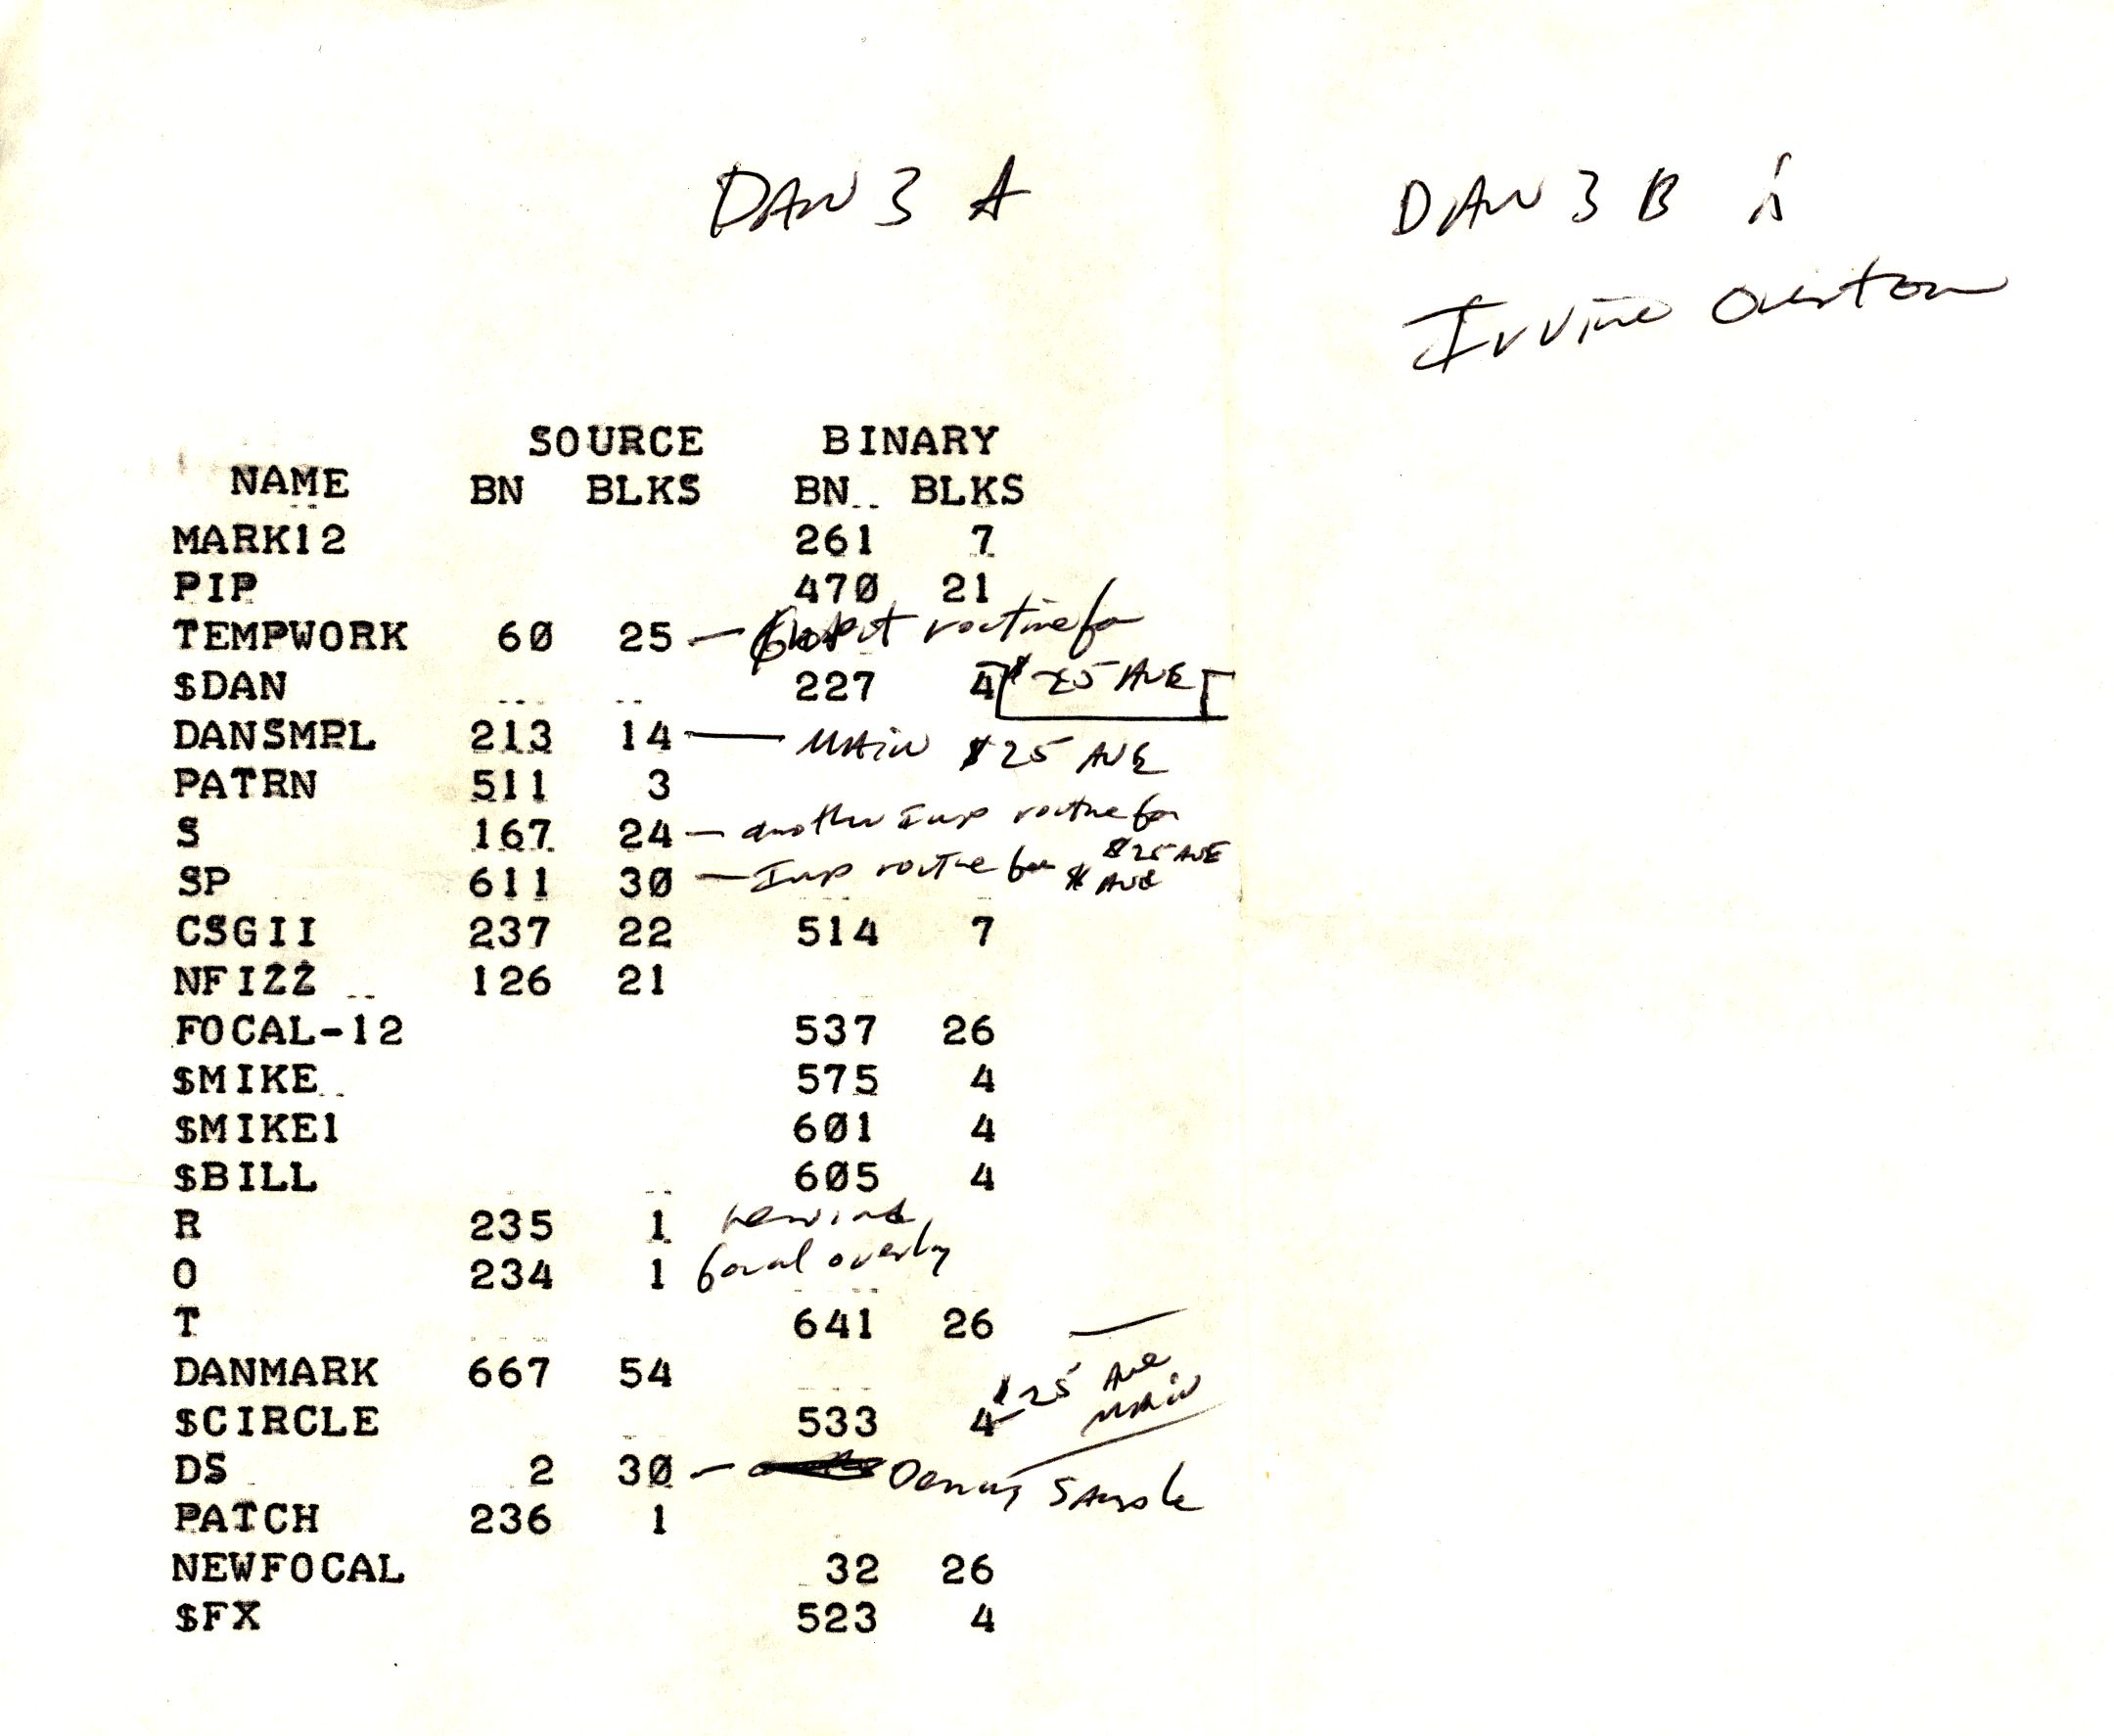 DAN 3 A    DAN 3 B is
Irvine Overton
SOURCE    BINARY
NAME    BN    BLKS    BN    BLKS
MARK12    261    7
PIP    470    21
TEMPWORK    60    25 — routine for
$DAN    227    4    $25 AVE
DANSMPL    213    14 — MAIN $25 AVE
PATRN    511    3
S    167    24 — another Inp routine for
$25 AVE
SP    611    30 — Inp routine for $ AVE
CSGII    237    22    514    7
NFIZZ    126    21
FOCAL-12    537    26
$MIKE    575    4
$MIKE1    601    4
$BILL    605    4
R    235    1    rewind
O    234    1    focal overlay
T    641    26
DANMARK    667    54    $25 Ave
MAIN
$CIRCLE    533    4
DS    2    30 — Danny Sample
PATCH    236    1
NEWFOCAL    32    26
$FX    523    4